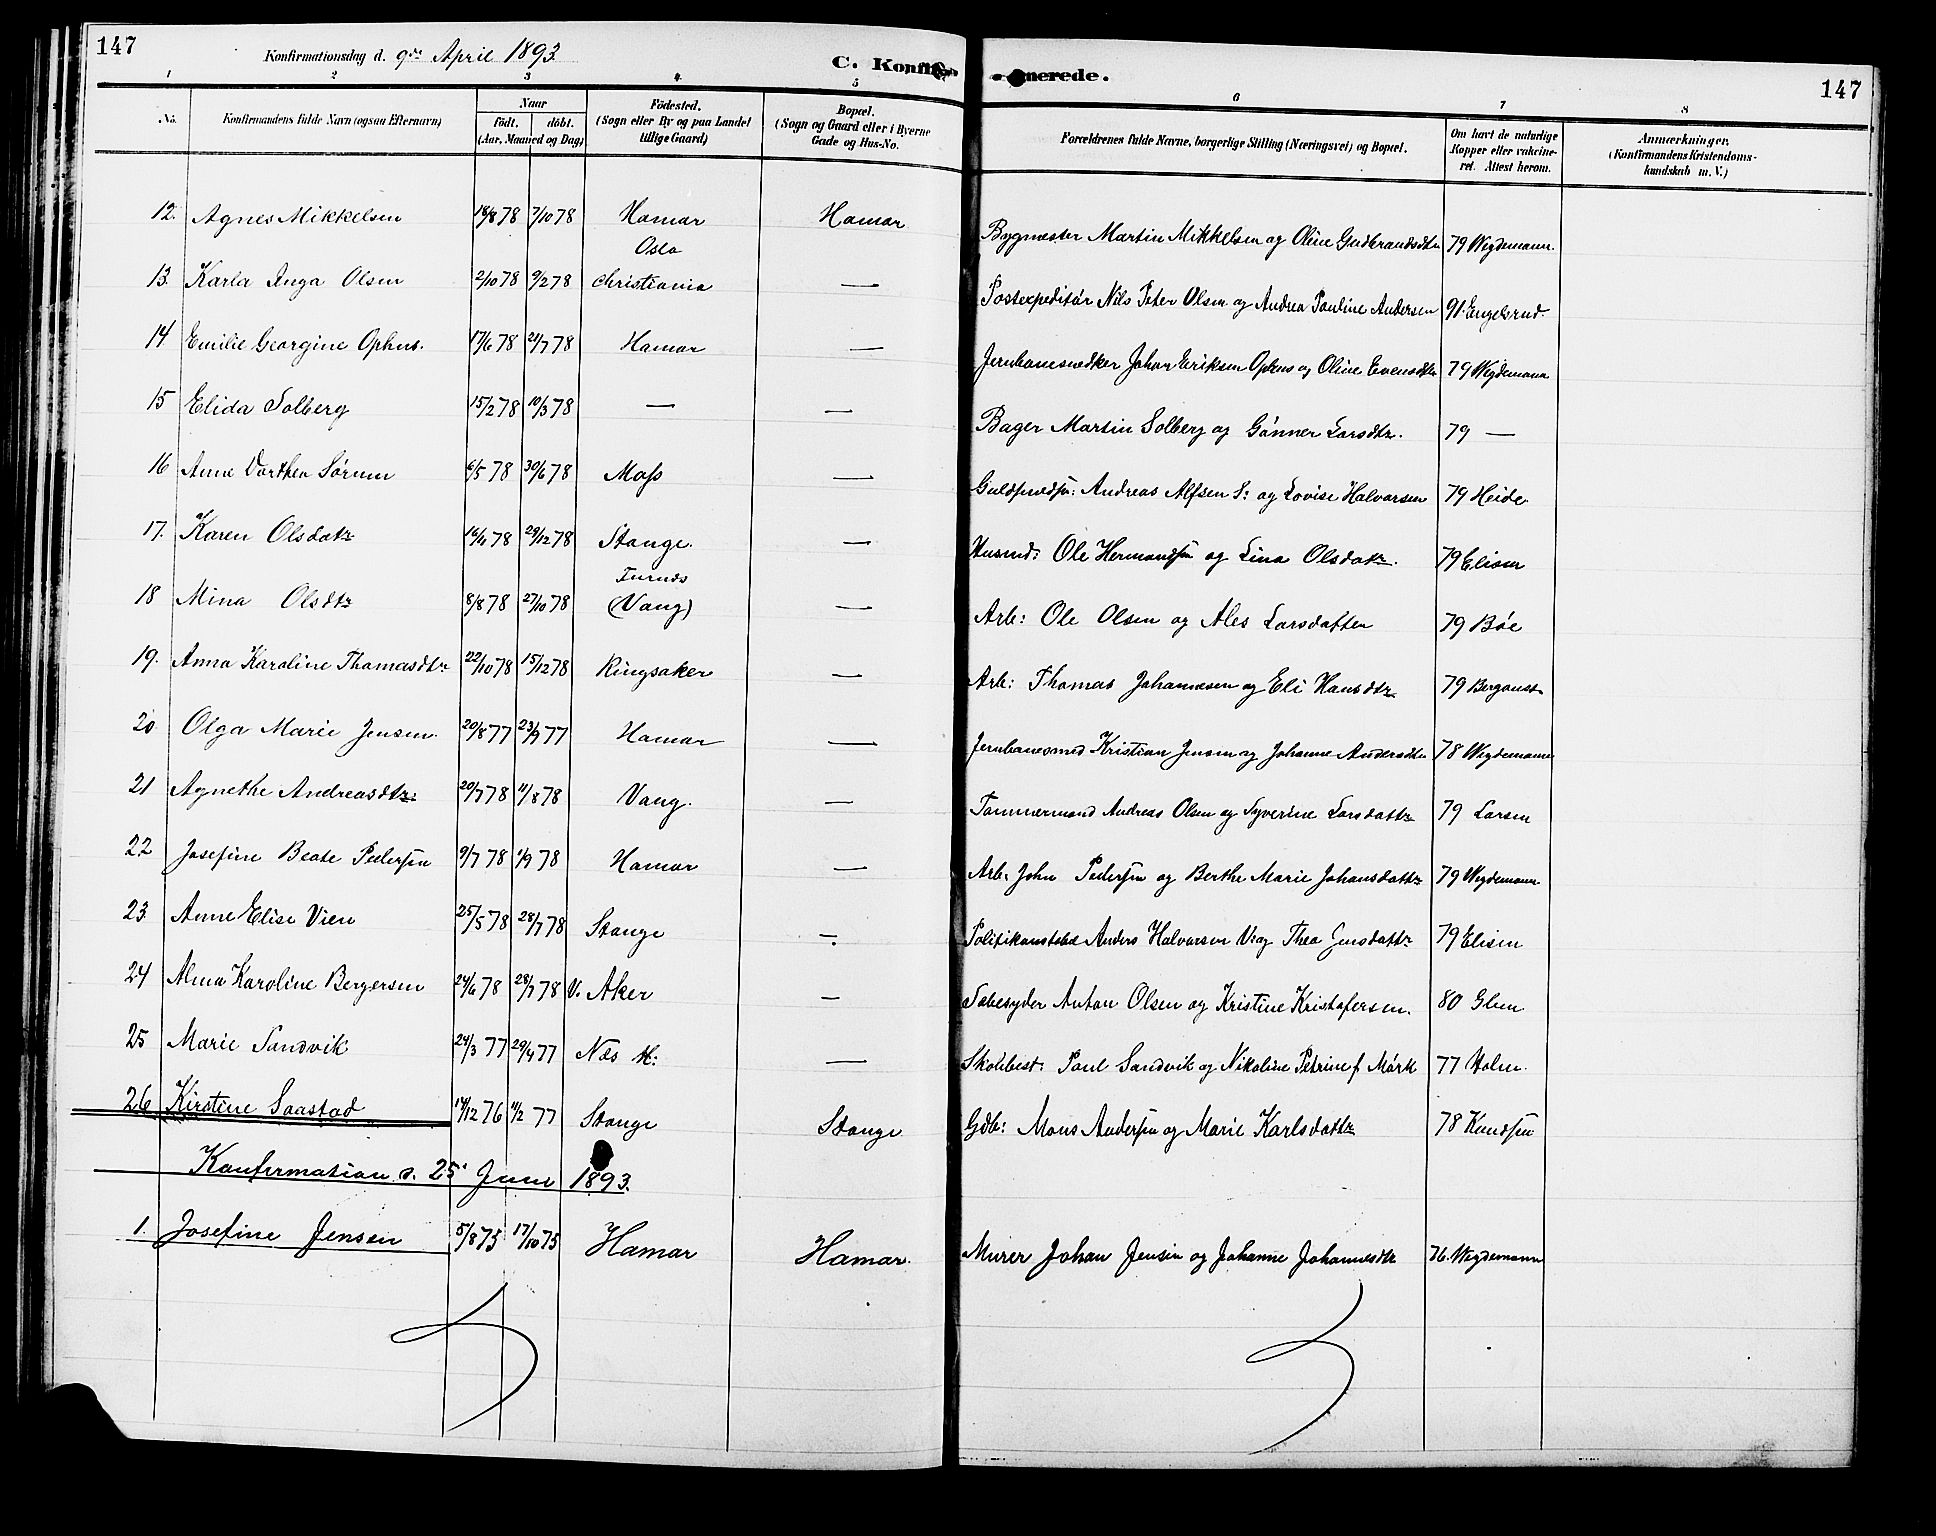 147
Konfirmationsdag d. 9de April 1893
C. Konfir merede.
147
1 2 3 4 5 6 7 8
No. Konfirmandens fulde Navn (ogsaa Efternavn) Naar födt. döbt. (Aar, Maaned og Dag) Födested. (Sogn eller By og paa Landet tillige Gaard) Bopæl. (Sogn og Gaard eller i Byerne Gade og Hus-No. Forældrenes fulde Navne, borgerlige Stilling (Næringsvei) og Bopæl. Om havt de naturlige Kopper eller vakcineret. Attest herom. Anmærkninger. (Konfirmandens Kristendomskundskab m. V.)
12. Agnes Mikkelsen 18/8 78 7/10 78 Hamar Hamar Bygmester Martin Mikkelsen og Oline Gudbrandsdtr 79 Wegdemann.
13. Karla Inga Olsen 2/10 78 9/2 78 Oslo Christiania — Postexpeditör Nils Peter Olsen og Andrea Pauline Andersen 91. Engelsrud.
14 Emilie Georgine Ophus. 17/6 78 21/7 78 Hamar — Jernbanesnedker Johan Eriksen Ophus og Oline Evensdtr 79 Wegdemann
15 Elida Solberg 15/2 78 10/3 78 — — Bager Martin Solberg og Gönner Larsdtr. 79 —
16 Anne Dorthea Sörum 6/5 78 30/6 78 Moss — Guldsmedsv: Andreas Alfsen S: og Lovise Halvorsen 79 Heide
17. Karen Olsdatr 16/11 78 29/12 78 Stange. — Husmd: Ole Hermandsen og Lina Olsdatr. 79 Elisen
18 Mina Olsdtr 8/8 78 27/10 78 Furnes (Vang) — Arb: Ole Olsen og Ales Larsdatter 79 Böe
19. Anna Karoline Thomasdtr 22/10 78 15/12 78 Ringsaker — Arb: Thomas Johannesen og Eli Hansdtr 79 Bergaust
20 Olga Marie Jensen. 20/8 77 23/9 77 Hamar — Jernbanesmed Kristian Jensen og Johanne Andersdtr 78 Wegdemann
21 Agnethe Andreasdtr: 20/7 78 11/8 78 Vang. — Tömmermand Andreas Olsen og Syverine Larsdattr 79 Larsen
22 Josefine Beate Pedersen 9/7 78 1/9 78 Hamar — Arb. John Pedersen og Berthe Marie Johansdattr 79 Wegdemann
23 Anne Elise Vien 25/5 78 28/7 78 Stange — Politikonstabel Anders Halvorsen V: og Thea Jensdattr 79 Elisen
24 Alma Karoline Bergersen 24/6 78 28/7 78 V. Aker — Sæbesyder Anton Olsen og Kristine Kristofersen. 80 Glen
25 Marie Sandvik 24/3 77 29/4 77 Næs H: — Skolebest: Paul Sandvik og Nikoline Petrine f Mörk 77 Holm.
26 Kirstine Saastad 14/12 76 11/2 77 Stange Stange Gdb: Mons Andersen og Marie Karlsdattr 78 Knudsen
Konfirmation d. 25' Juni 1893.
1. Josefine Jensen 5/8 75 17/10 75 Hamar Hamar. Murer Johan Jensen og Johanne Johannesdtr 76. Wegdemann